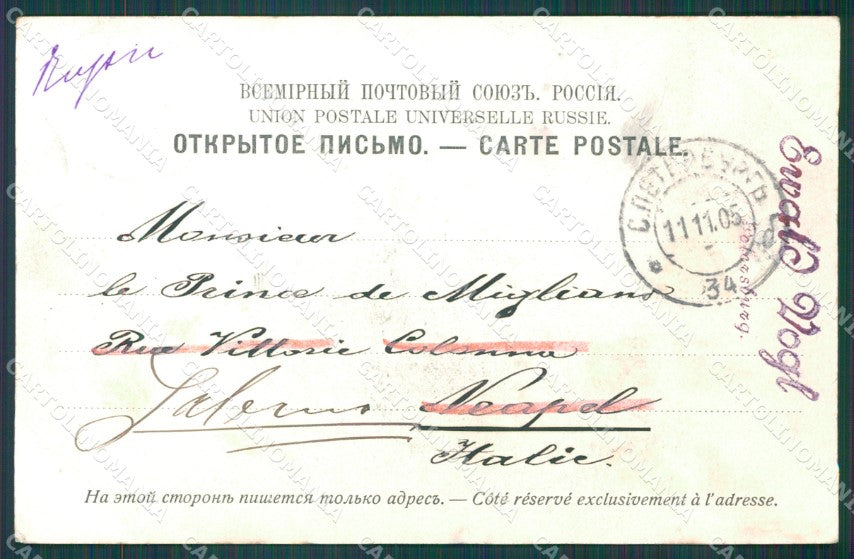 ВСЕМІРНЫЙ ПОЧТОВЫЙ СОЮЗЪ. РОССІЯ.
UNION POSTALE UNIVERSELLE RUSSIE.
ОТКРЫТОЕ ПИСЬМО. — CARTE POSTALE.
С.ПЕТЕРБУРГЪ
11 11.05
34
Ewald Vogt
Monsieur
le Prince de Migliano
Rue Vittorie Colonna
Salerno Neapel
Italie.
На этой сторонѣ пишется только адресъ. — Côté réservé exclusivement à l'adresse.
CARTOLINOMANIA